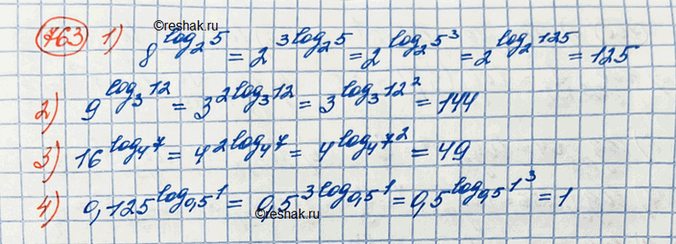 ©reshak.ru
763 1) 8^{log_2 5} = 2^{3log_2 5} = 2^{log_2 5^3} = 2^{log_2 125} = 125
2) 9^{log_3 12} = 3^{2log_3 12} = 3^{log_3 12^2} = 144
3) 16^{log_4 7} = 4^{2log_4 7} = 4^{log_4 7^2} = 49
4) 0,125^{log_{0,5} 1} = 0,5^{3log_{0,5} 1} = 0,5^{log_{0,5} 1^3} = 1
©reshak.ru